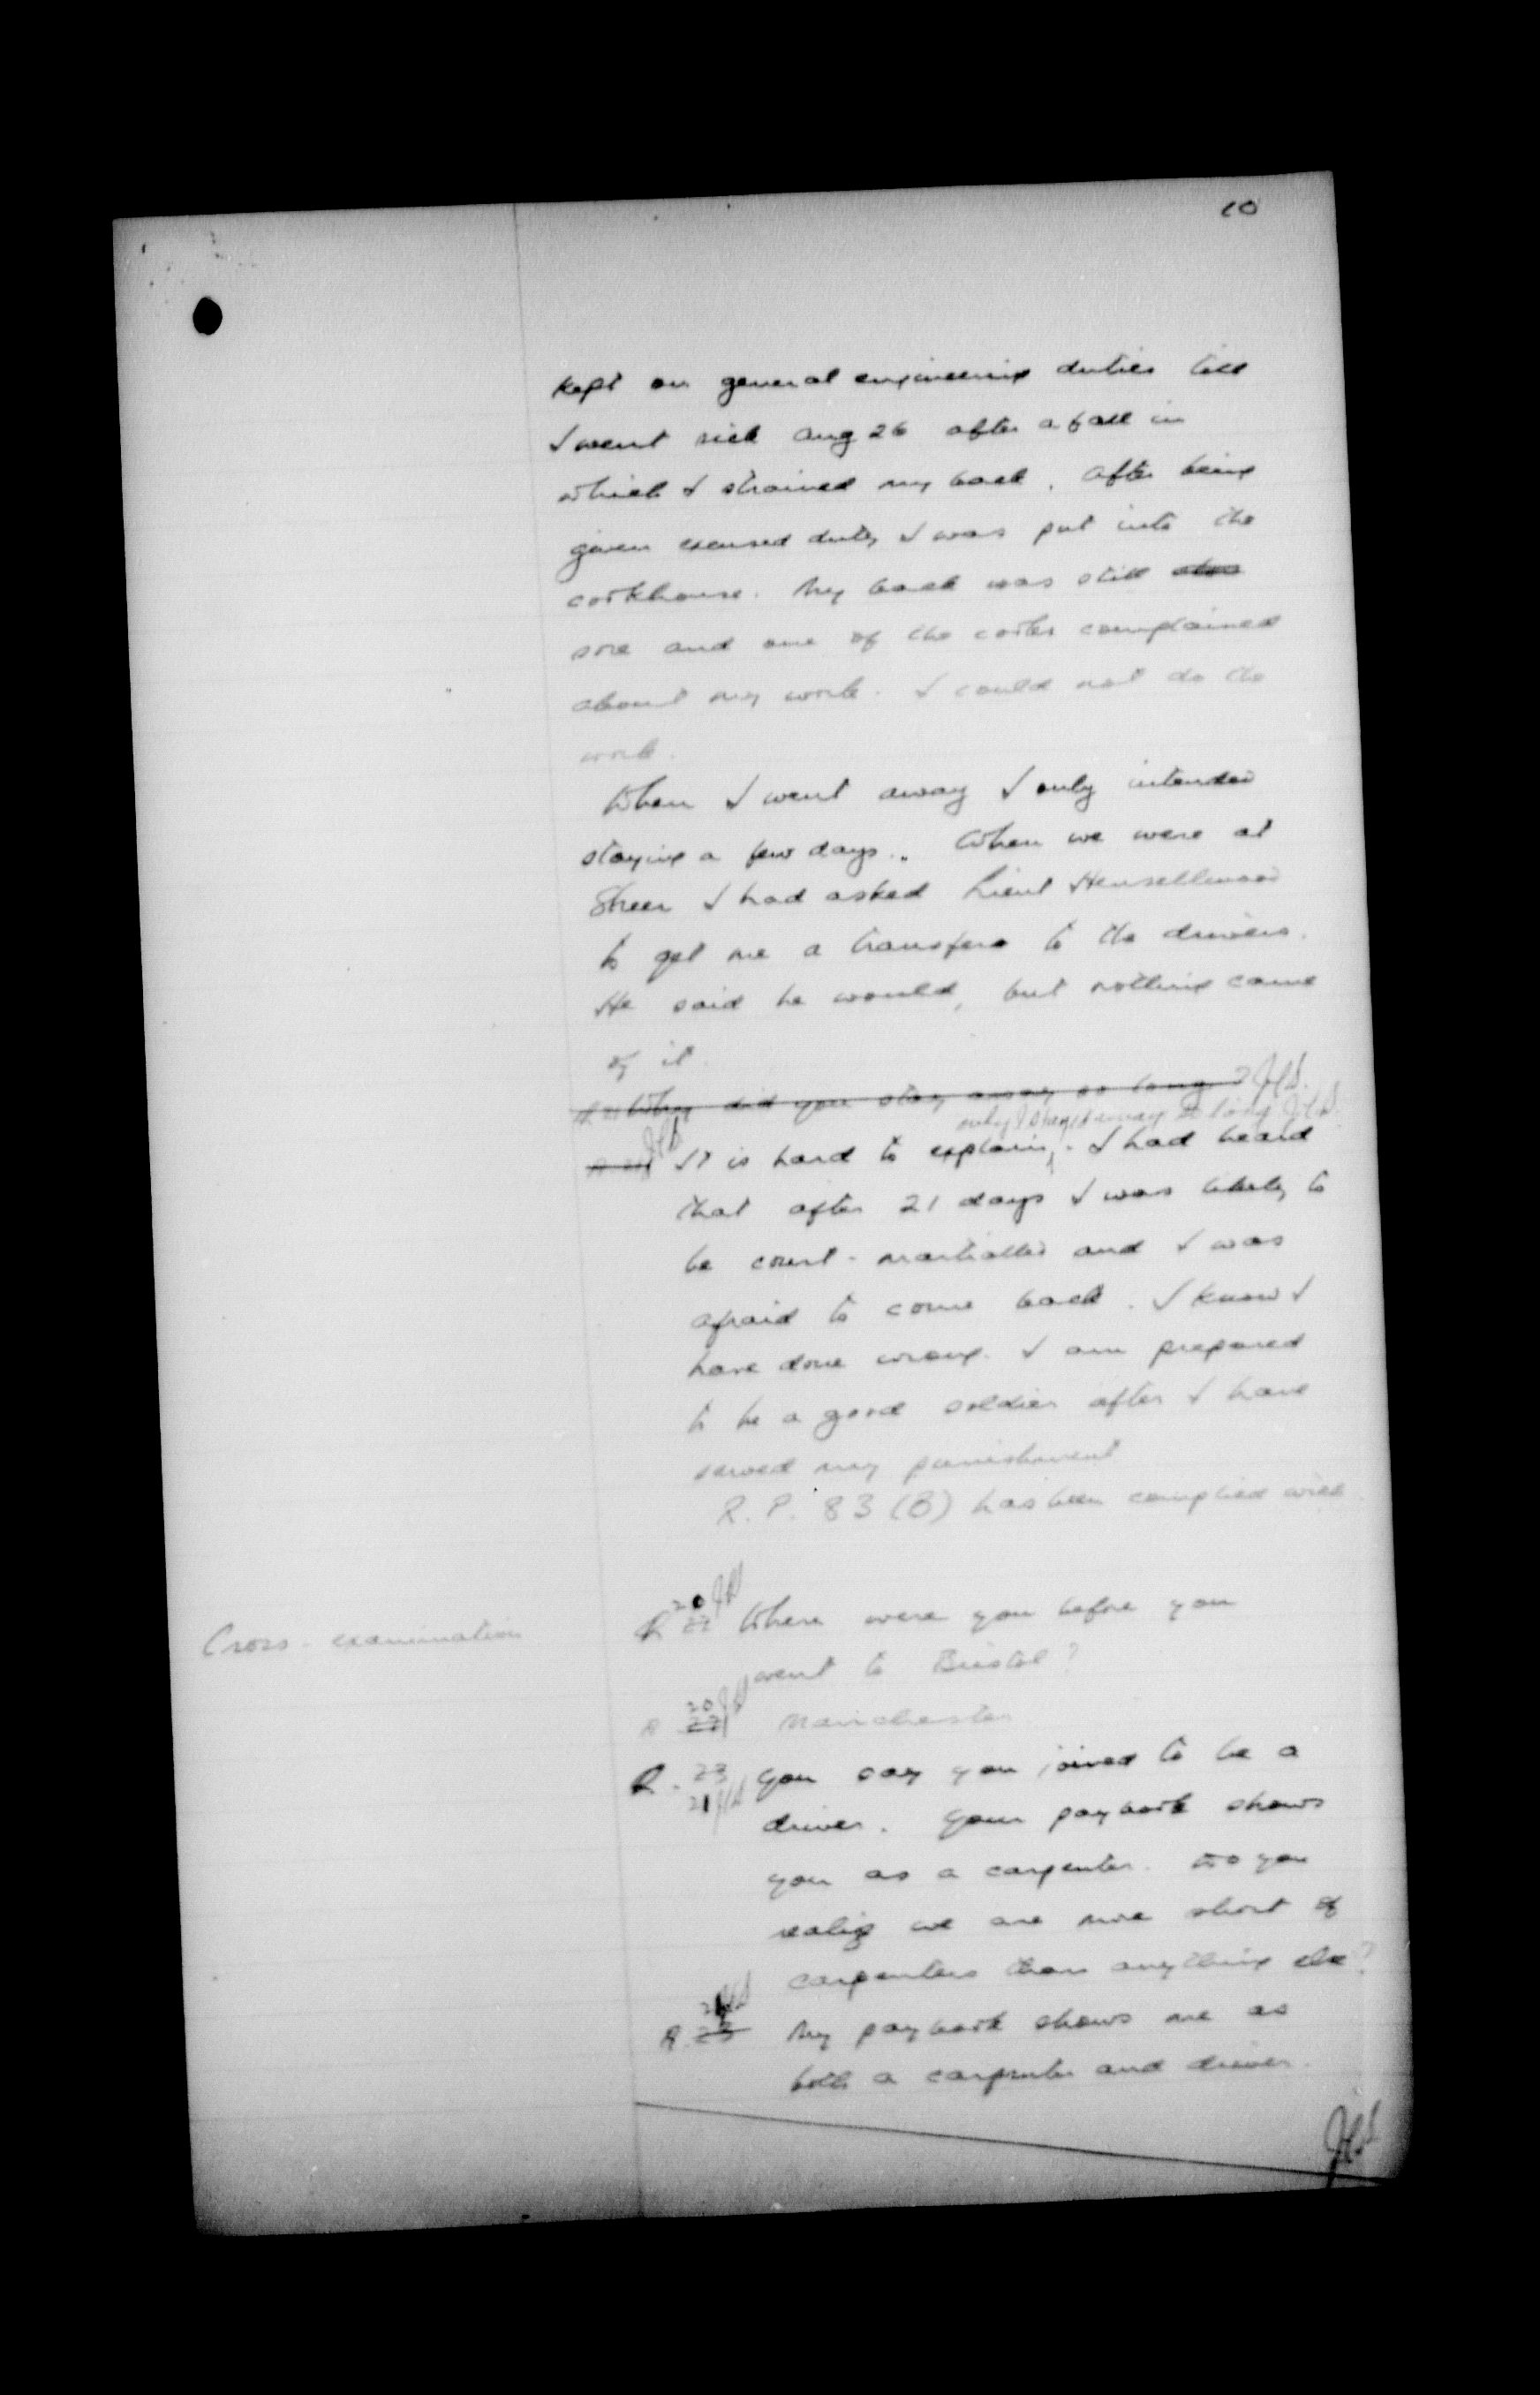 10
kept on general engineering duties till
I went sick Aug 26 after a fall in
which I strained my back. After being
given excused duty I was put into the
cookhouse. My back was still
sore and one of the cooks complained
about my work. I could not do the
work.
When I went away I only intended
staying a few days. When we were at
Sheer I had asked Lieut
to get me a transfer to the drivers.
He said he would, but nothing came
of it.
Why did you stay away so long? JHS.
why I stayed away so long JHS.
JHS It is hard to explain. I had heard
that after 21 days I was likely to
be court-martialled and I was
afraid to come back. I know I
have done wrong. I am prepared
to be a good soldier after I have
served my punishment
R.P. 83 (B) has been complied with.
Cross-examination
20 JHS
Q 22 Where were you before you
went to Bristol?
20 JHS
A 22 Manchester
Q. 23 You say you joined to be a
21 JHS
driver. Your paybook shows
you as a carpenter. Do you
realize we are more short of
carpenters than anything else?
21 JHS
A. 23 My paybook shows me as
both a carpenter and driver.
JHS